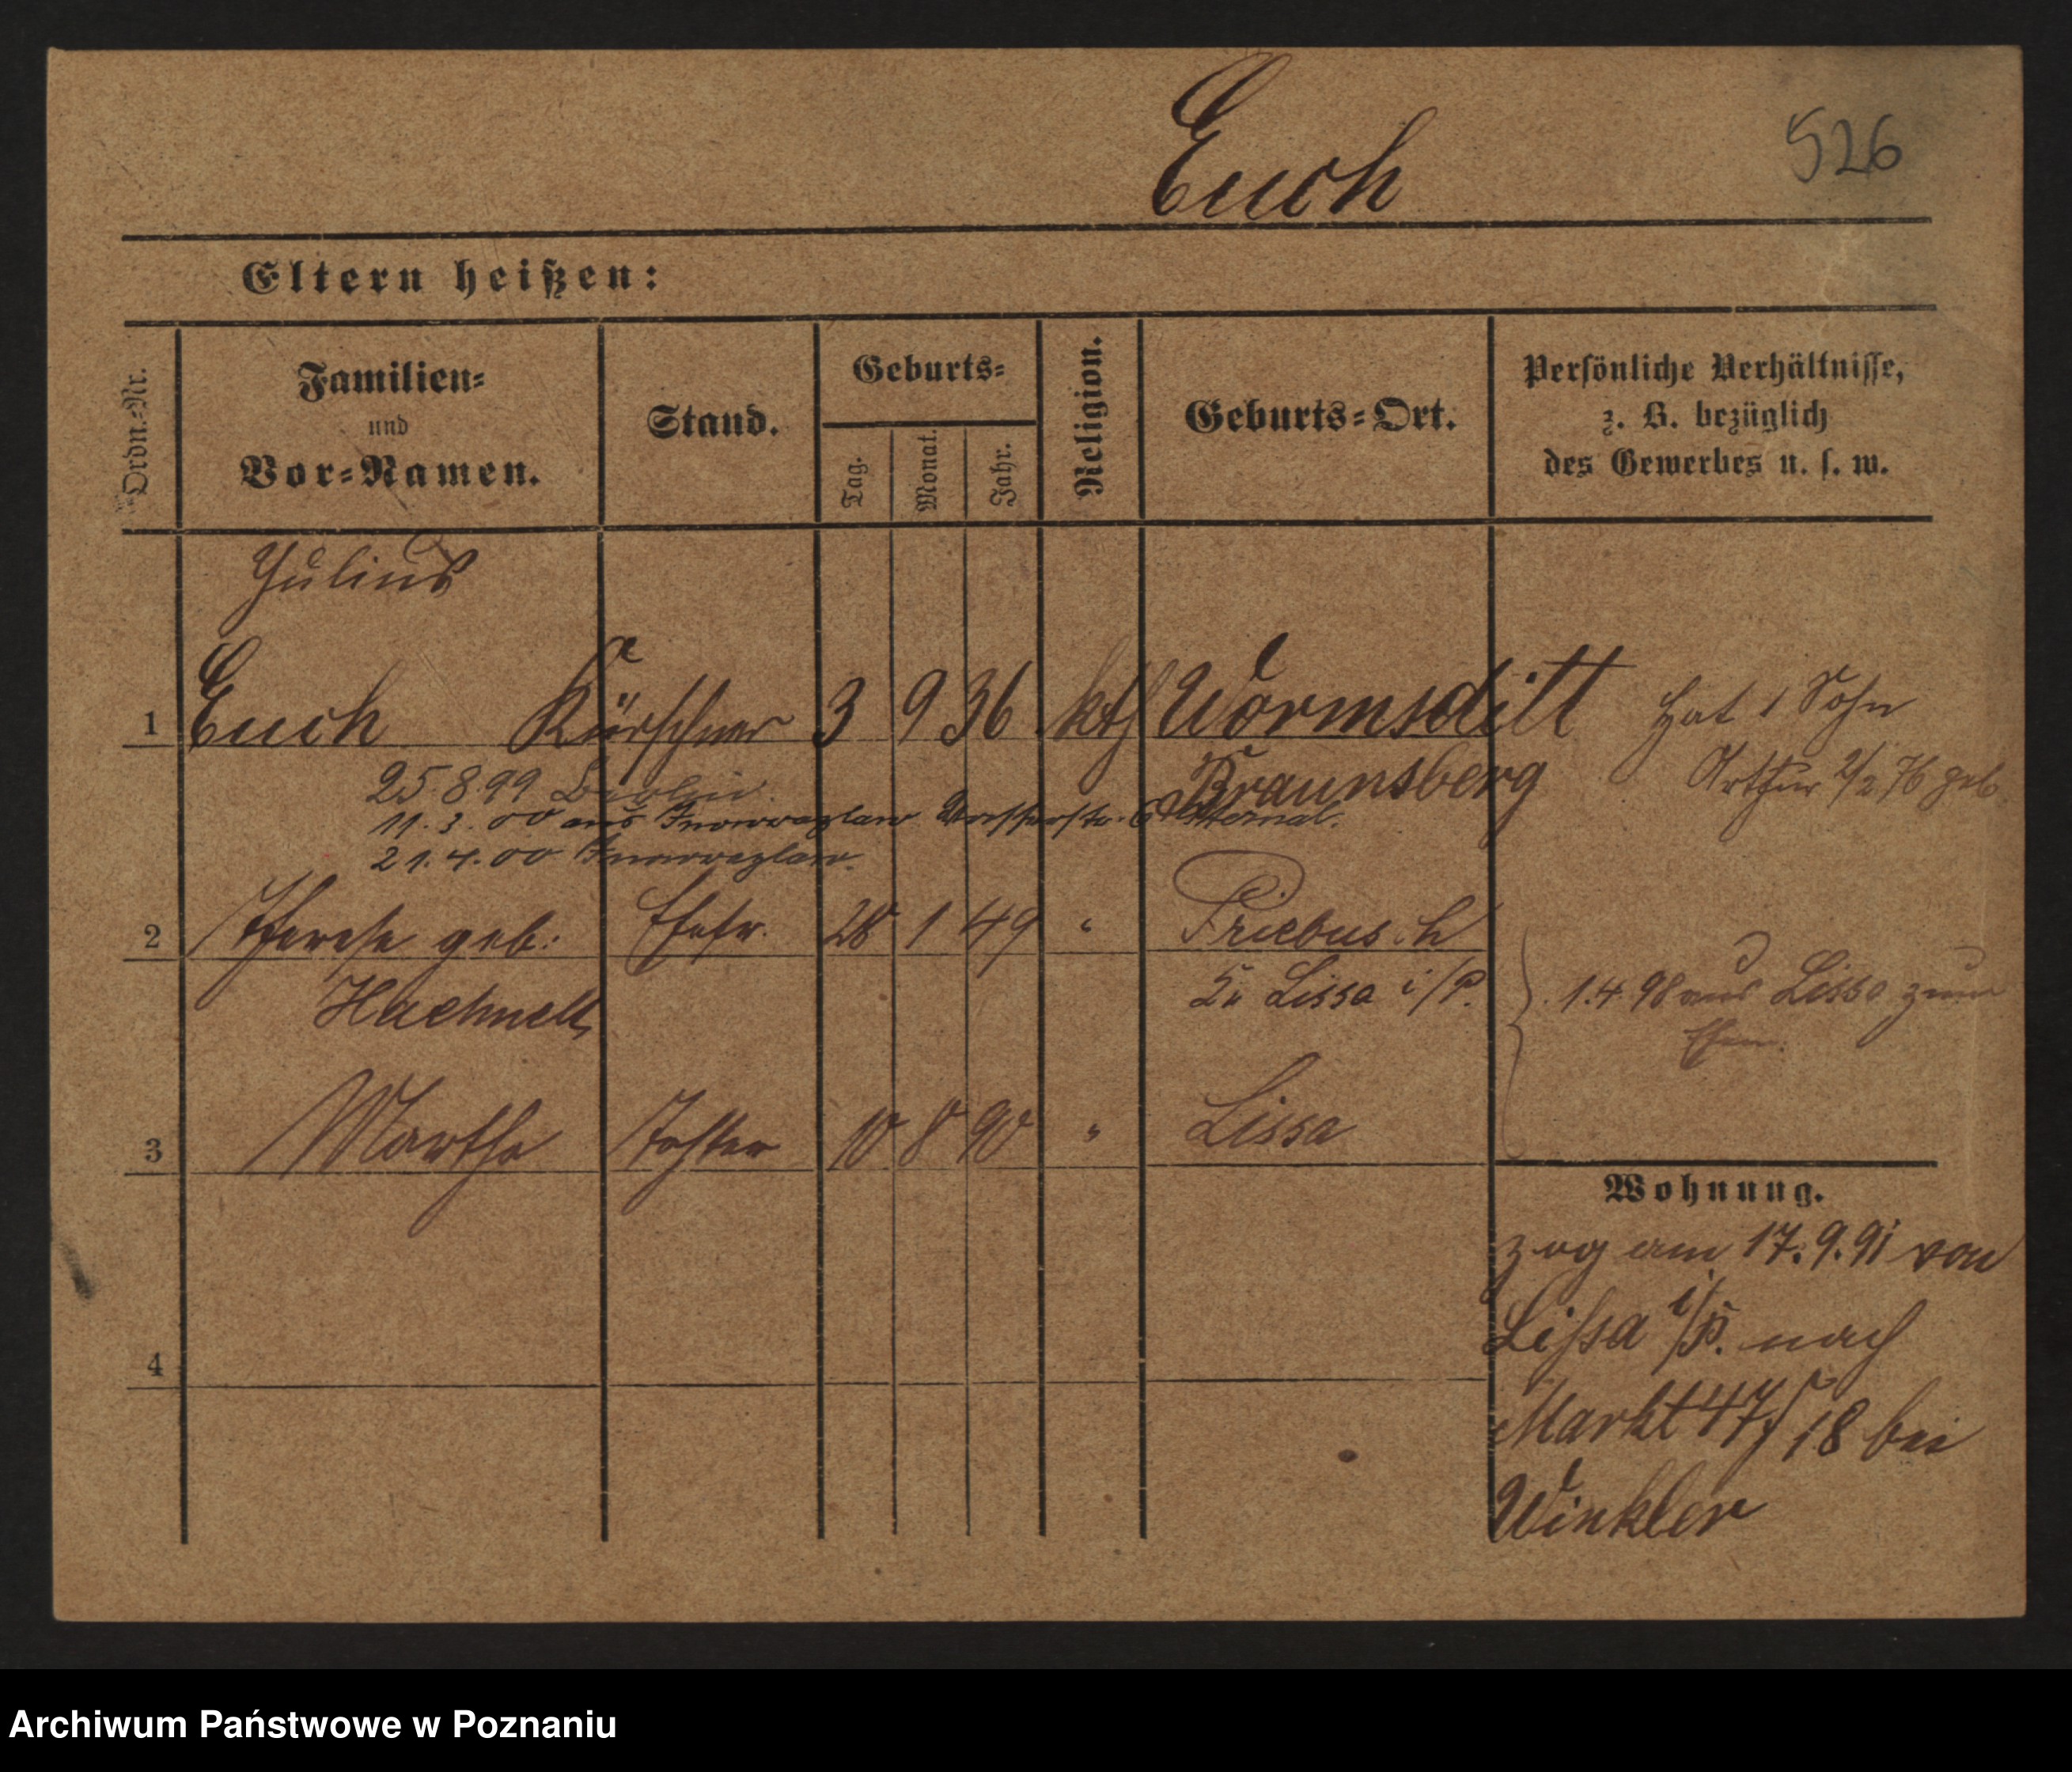 Euch
526
Eltern heißen:
Ordn.-Nr.
Familien-
und
Vor-Namen.
Stand.
Geburts-
Tag.
Monat.
Jahr.
Religion.
Geburts-Ort.
Persönliche Verhältnisse,
z. B. bezüglich
des Gewerbes u. s. w.
Julius
1 Euch Kürschner 3 9 36 kth Wormsditt Hat 1 Sohn
Braunsberg Arthur 2/2 76 geb
25.8.99 Berlin.
11.3.00 aus Inowrazlaw
21.4.00 Inowrazlaw.
2 Therese geb: Ehefr. 28 1 49 " Priebusch
Haehnelt Lissa i/P. 1.4.98 aus Lissa zum
Ehem.
3 Martha Tochter 10 8 90 " Lissa
Wohnung.
zog am 17.9.91 von
Lissa i/P. nach
4
Markt 47/18 bei
Winkler
Archiwum Państwowe w Poznaniu